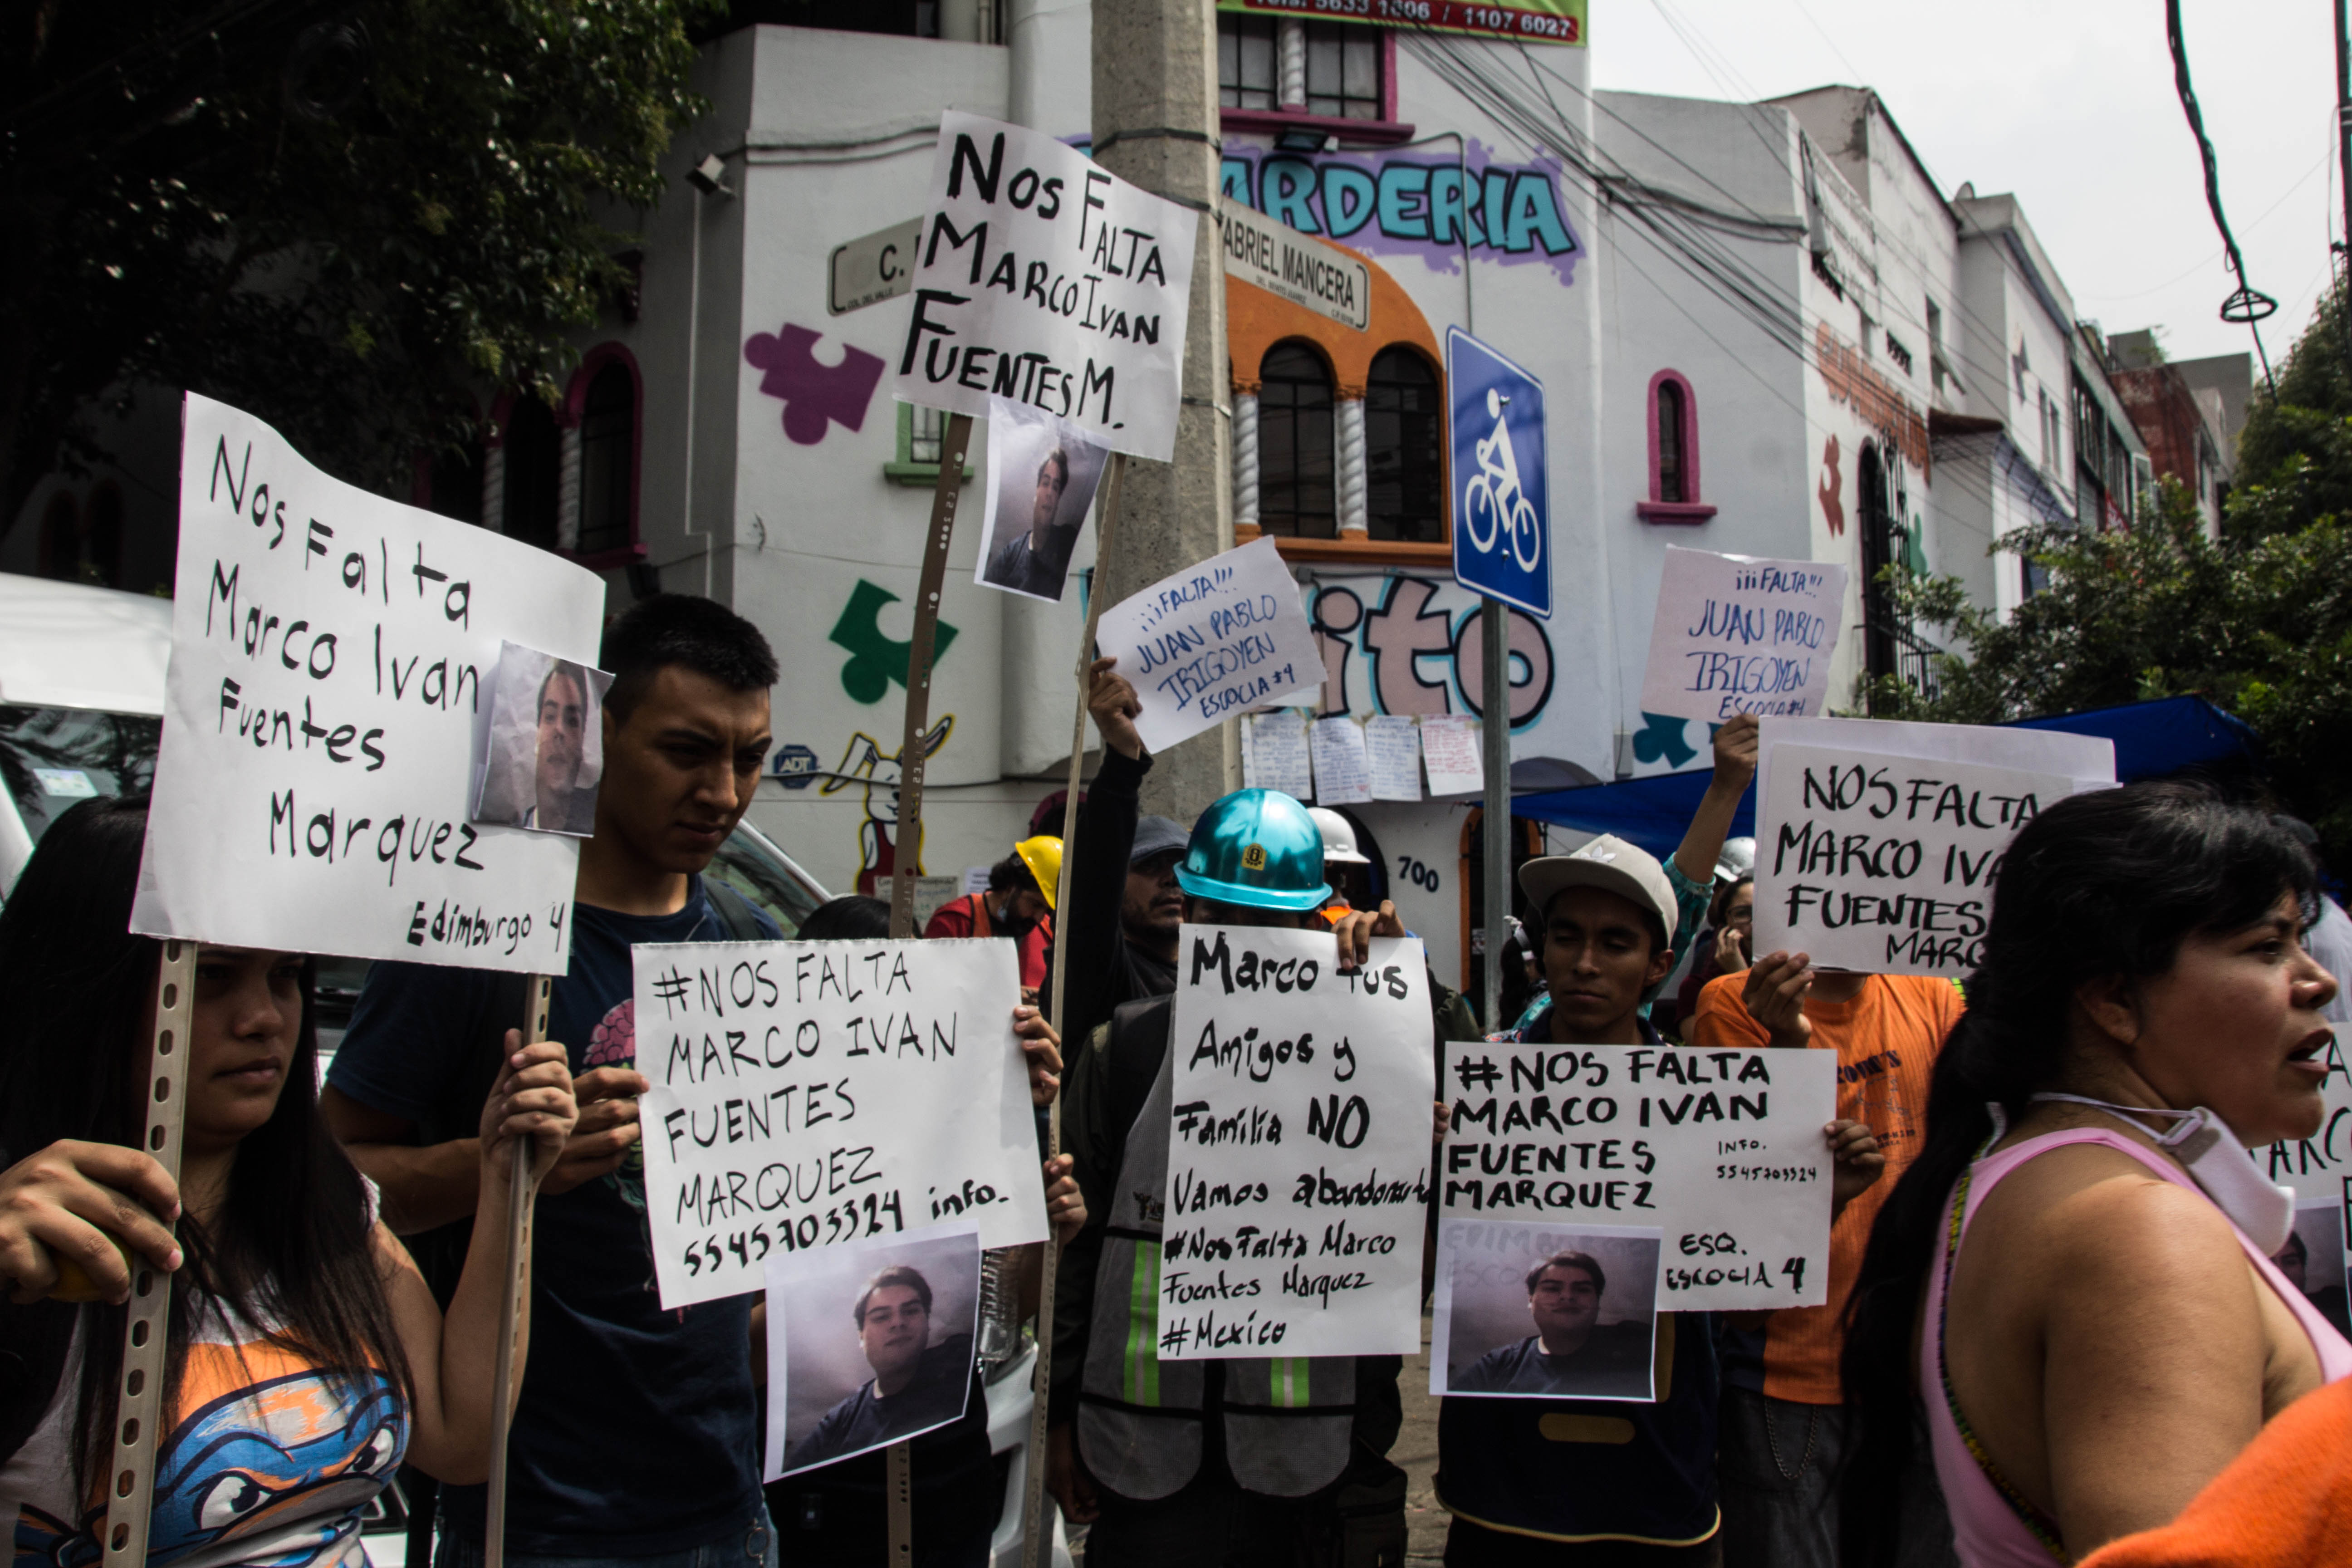 Tels. 5633 1806 / 1107 6027
ARDERIA
C.
COL. DEL VALLE
GABRIEL MANCERA
DEL. BENITO JUAREZ
Nos FALTA
MARCO IVAN
FUENTES M.
Nos Falta
Marco Ivan
Fuentes
Marquez
Edimburgo 4
¡¡¡FALTA!!!
JUAN PABLO
IRIGOYEN
ESCOCIA #4
¡¡¡FALTA!!!
JUAN PABLO
IRIGOYEN
ESCOCIA #4
ito
ADT
700
NOS FALTA
MARCO IVA
FUENTES
MARQ
#NOS FALTA
MARCO IVAN
FUENTES
MARQUEZ
5545703324 info.
Marco tus
Amigos y
Familia NO
Vamos abandonarte
#NosFalta Marco
Fuentes Marquez
#Mexico
#NOS FALTA
MARCO IVAN
FUENTES
MARQUEZ
INFO.
5545703324
EDIMBURGO
ESCO
ESQ.
ESCOCIA 4
ARC